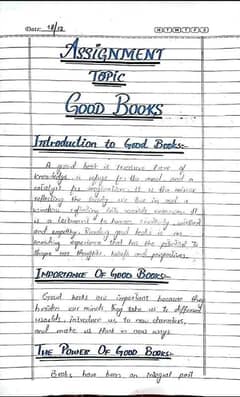 Date: 18/12 M T W T F S S
ASSIGNMENT
TOPIC
GOOD BOOKS
Introduction to Good Books:-
A good book is treasure trove of
knowledge, a refuge for the soul and a
catalyst for imagination. It is the mirror
reflecting the society we live in and a
window
is a testament to human creativity,
and empathy. Reading good books is an
enriching experience that has the potential to
shape our thoughts, beliefs and perspectives.
IMPORTANCE OF GOOD BOOKS:-
Good books are important because they
broaden our minds, they take us to different
worlds, introduce us to new characters,
and make us think in new ways.
THE POWER OF GOOD BOOKS:-
Books have been an integral part